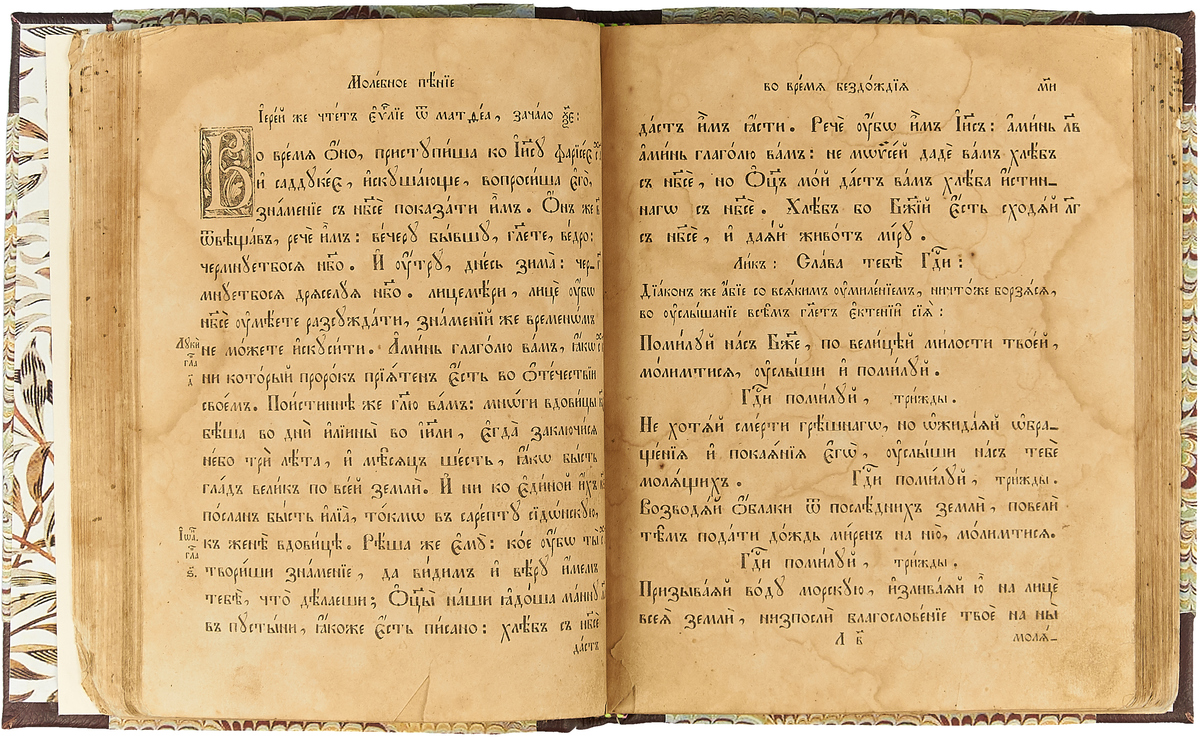 Моле́бное пѣ́нїе
І҆ере́й же чте́тъ є҆ѵⷢ҇лїе ѿ матѳе́а, зача́ло
Во вре́мѧ ѻ҆́но, пристꙋпи́ша ко і҆и҃сꙋ фарїсе́є
и҆ саддꙋке́є, и҆скꙋша́юще, вопроси́ша є҆го̀,
зна́менїе съ нб҃сѐ показа́ти и҆̀мъ. Ѻ҆́нъ же
ѿвѣща́въ, речѐ и҆̀мъ: ве́черꙋ бы́вшꙋ, гл҃ете, ве́дро:
чермнꙋ́етбосѧ нб҃о. И҆ ᲂу҆́трꙋ, дне́сь зима̀: чер-
мнꙋ́етбосѧ дрѧселꙋ́ѧ нб҃о. лицемѣ́ри, лицѐ ᲂу҆́бѡ
нб҃сѐ ᲂу҆мѣ́ете разсꙋжда́ти, зна́менїй же временѡ́мъ
не мо́жете и҆скꙋси́ти. А҆ми́нь глаго́лю ва́мъ, ꙗ҆́кѡ
ни кото́рый проро́къ прїѧ́тенъ є҆́сть во ѻ҆те́чествїи
свое́мъ. Пои́стиннѣ же гл҃ю ва́мъ: мнѡ́ги вдови́цы
бѣ́ша во дни̑ и҆лїины̀ во і҆и҃ли, є҆гда̀ заключи́сѧ
не́бо трѝ лѣ̑та, и҆ мⷭ҇ѣцъ ше́сть, ꙗ҆́кѡ бы́сть
гла́дъ вели́къ по все́й землѝ. И҆ ни ко є҆ди́ной и҆́хъ
по́сланъ бы́сть и҆лїа̀, то́кмѡ въ саре́птꙋ сїдѡ́нскꙋю,
къ женѣ̀ вдови́цѣ. Рѣ́ша же є҆мꙋ̀: ко́е ᲂу҆́бѡ ты̀
твори́ши зна́менїе, да ви́димъ и҆ вѣ́рꙋ и҆́мемъ
тебѣ̀, что̀ дѣ́лаеши; Ѻ҆тцы̀ на́ши ꙗ҆до́ша ма́ннꙋ
въ пꙋсты́ни, ꙗ҆́коже є҆́сть пи́сано: хлѣ́бъ съ нб҃сѐ
да́стъ
Лꙋки̑
гла
І҆ѡа
гла
во вре́мѧ бездо́ждїѧ
м҃и
да́стъ и҆̀мъ ꙗ҆́сти. Речѐ ᲂу҆́бѡ и҆̀мъ І҆и҃съ: а҆ми́нь л҃в
а҆ми́нь глаго́лю ва́мъ: не мѡѷсе́й дадѐ ва́мъ хлѣ́бъ
съ нб҃сѐ, но ѻ҆ц҃ъ мо́й да́стъ ва́мъ хлѣ́ба и҆́стин-
нагѡ съ нб҃сѐ. Хлѣ́бъ бо бж҃їй є҆́сть сходѧ́й л҃г
съ нб҃сѐ, и҆ даѧ́й живо́тъ мі́рꙋ.
Ли́къ: Сла́ва тебѣ̀ гдⷭ҇и:
Дїа́конъ же а҆́бїе со всѧ́кимъ ᲂу҆миле́нїемъ, ничто́же борзѧ́сѧ,
во ᲂу҆слы́шанїе всѣ̑мъ гл҃етъ є҆ктенїѝ сїѧ̑:
Поми́лꙋй на́съ бж҃е, по вели́цѣй ми́лости твое́й,
мо́лимтисѧ, ᲂу҆слы́ши и҆ поми́лꙋй.
Гдⷭ҇и поми́лꙋй, три́жды.
Не хотѧ́й сме́рти грѣ́шнагѡ, но ѡ҆жида́ѧй ѡ҆бра-
ще́нїѧ и҆ покаѧ́нїѧ є҆гѡ̀, ᲂу҆слы́ши на́съ тебѣ̀
молѧ́щихъ. Гдⷭ҇и поми́лꙋй, три́жды.
Возводѧ́й ѻ҆́блаки ѿ послѣ́днихъ землѝ, повелѝ
тѣ̑мъ пода́ти до́ждь ми́ренъ на ню̀, мо́лимтисѧ.
Гдⷭ҇и поми́лꙋй, три́жды.
Призыва́ѧй во́дꙋ морскꙋ́ю, и҆злива́ѧй ю҆̀ на лицѐ
всеѧ̀ землѝ, низпослѝ благослове́нїе твоѐ на ны̀
Л в҃
молѧ́-